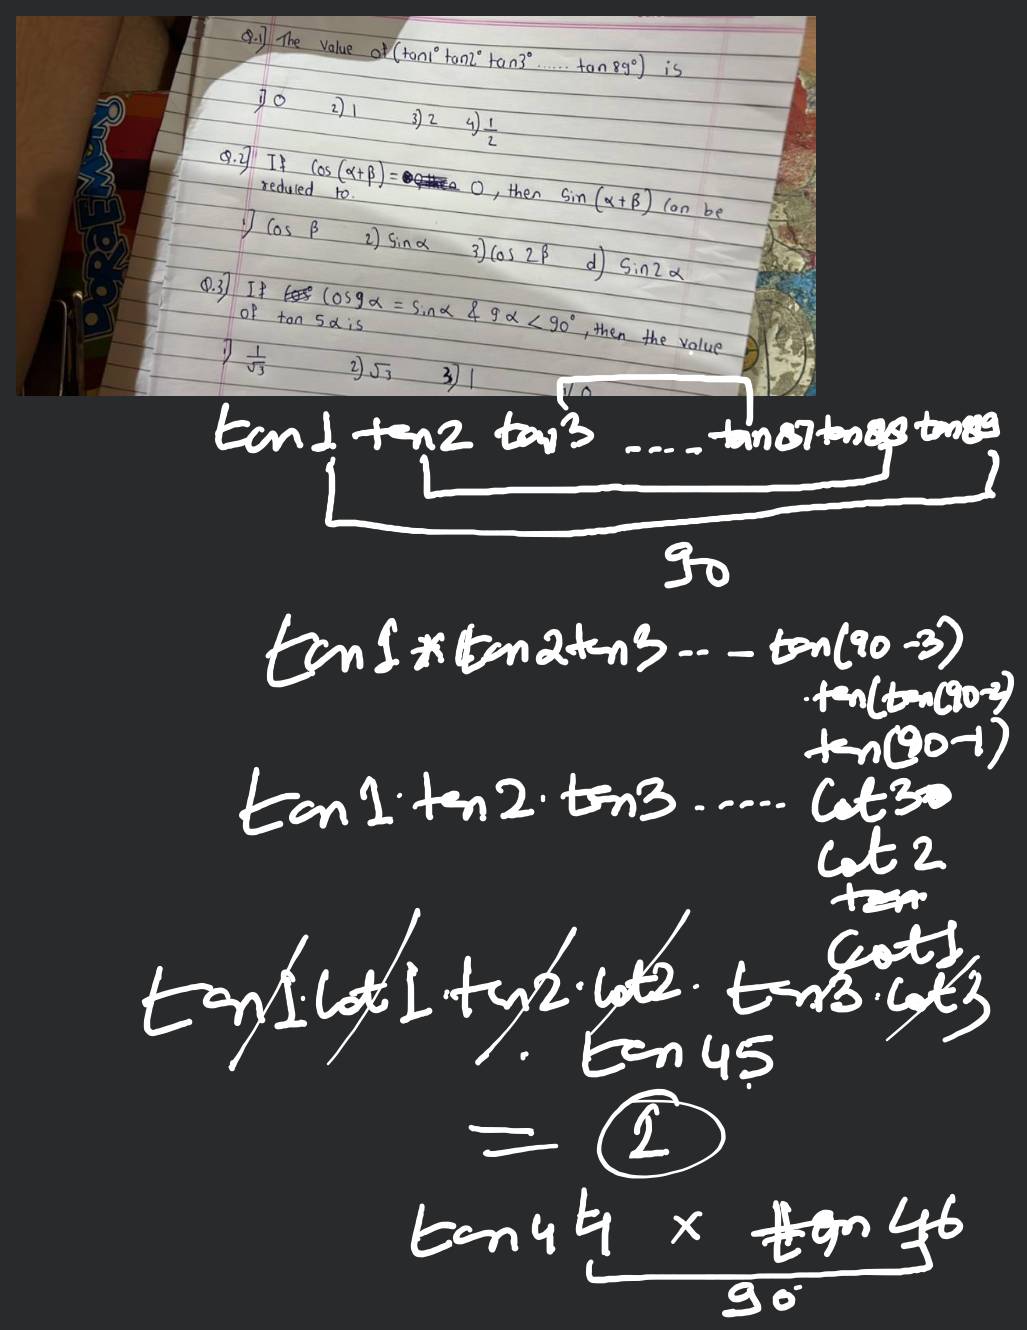 Q.1] The value of (tan1° tan2° tan3° ...... tan 89°) is
1) 0 2) 1 3) 2 4) 1/2
Q.2] If Cos (α+β) = 0, then Sin (α+β) can be
reduced to.
1) Cos β 2) Sin α 3) Cos 2β d) Sin2α
Q.3] If Cos9α = Sinα & 9α < 90°, then the value
of tan 5α is
1) 1/√3 2) √3 3) 1
DORAEMON
tan1 tan2 tan3 .... tan87 tan88 tan89
90
tan1 * tan2 tan3 -- - tan(90-3)
.tan(tan(90-2)
tan(90-1)
tan1·tan2·tan3 ...... Cot3
Cot 2
tan
Cot1
tan1·Cot1·tan2·Cot2·tan3·Cot3
. tan 45
= 1
tan44 x tan46
90